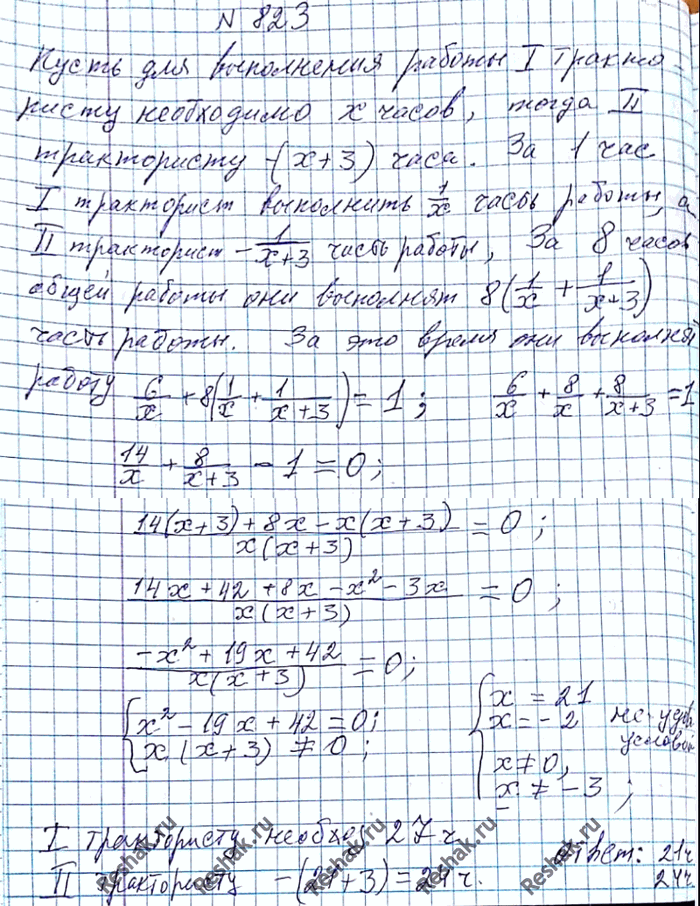 N 823
Пусть для выполнения работы I тракто-
ристу необходимо x часов, тогда II
трактористу - (x+3) часа. За 1 час
I тракторист выполнить 1/x часть работы, а
II тракторист - 1/(x+3) часть работы, За 8 часов
общей работы они выполнят 8(1/x + 1/(x+3))
часть работы. За это время они выполнят
работу 6/x + 8(1/x + 1/(x+3)) = 1; 6/x + 8/x + 8/(x+3) = 1
14/x + 8/(x+3) - 1 = 0;
(14(x+3)+8x-x(x+3))/(x(x+3)) = 0;
(14x+42+8x-x²-3x)/(x(x+3)) = 0;
(-x²+19x+42)/(x(x+3)) = 0;
{x²-19x+42=0; {x = 21
{x(x+3) ≠ 0; x = -2 не удов
условои
x≠0,
x ≠ -3;
I трактористу необход 27 ч
Ответ: 21ч
II трактористу - (21+3) = 24 ч. 24ч
Reshak.ru Reshak.ru Reshak.ru Reshak.ru